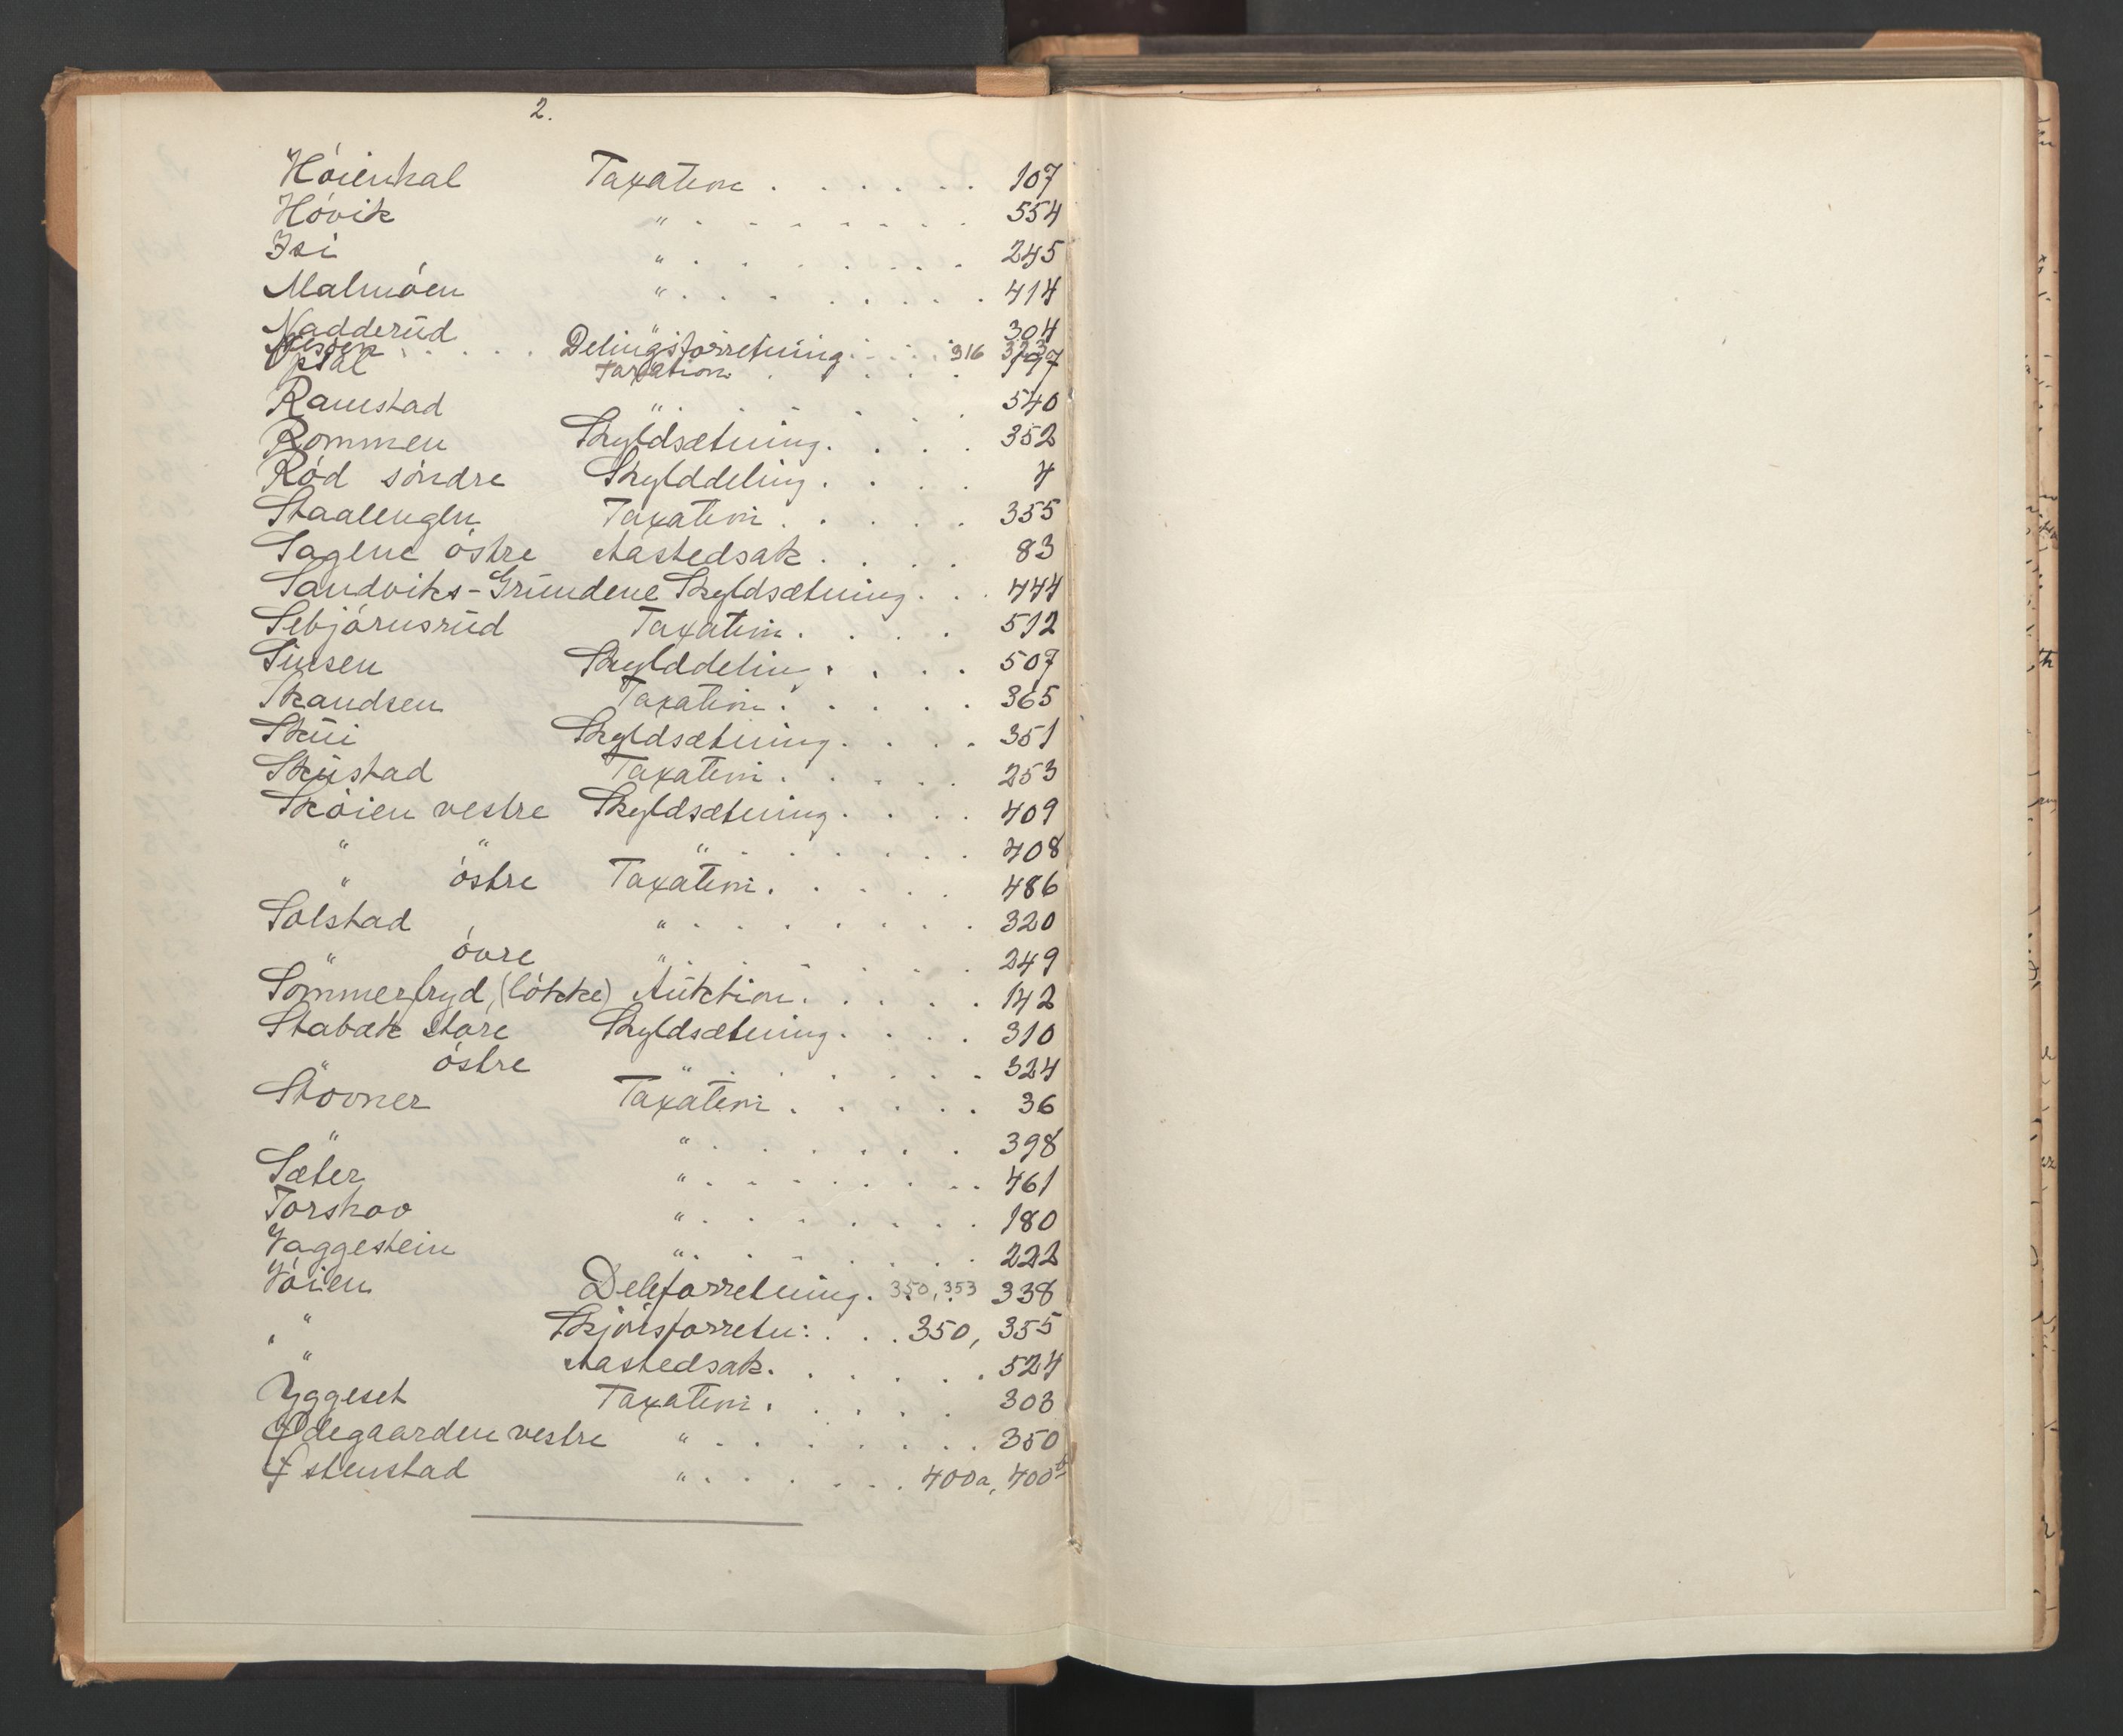 2.
Höienhal Taxation . . . . . . 107
Hövik " . . . . . . . 554
Isi " . . . . . . . 245
Malmöen " . . . . . . . . 414
Nadderud " 304
Nesöen . . . . Delingsforretning . . . . 316 323
Opsal Taxation . . . . .
Ramstad " . . . . . . 540
Rommen Skyldsætning . . . . 352
Röd söndre Skylddeling . . . . 4
Staalengen Taxation . . . . . 355
Sagene östre Aastedsak . . . . 83
Sandviks-Grundene Skyldsætning . . . 444
Sebjörnsrud Taxation . . . . 512
Sinsen Skylddeling . . . . 507
Skandsen Taxation . . . . . 365
Skui Skyldsætning . . . . 351
Skustad Taxation . . . . . 253
Sköien vestre Skyldsætning . . . . 409
" " " . . . . . . 408
" östre Taxation . . . . . 486
Solstad " . . . . . . . 320
" övre " . . . . . . 249
Sommerfryd, (lökke) Auktion . . . . . 142
Stabæk store Skyldsætning . . . . 310
" östre " . . . . . . . 324
Stovner Taxation . . . . . 36
" " . . . . . . 398
Sæter " . . . . . . . . 461
Torshov " . . . . . . . 180
Vaggestein " . . . . . . 222
Vöien Deleforretning . 350, 353 338
" " Skjönsforretn: . . . 350, 355
" Aastedsak . . . . . . 524
Yggeset Taxation . . . . . 303
Ödegaarden vestre " . . . . . . . 350
Östenstad " . . . . . . 400a, 400b